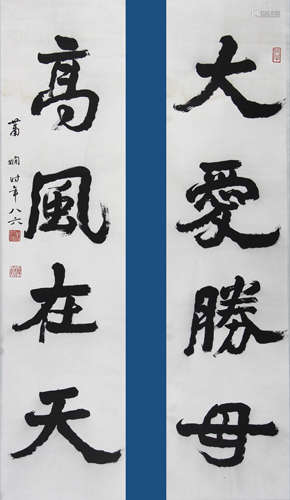 大愛勝母
高風在天
蕭嫻时年八六